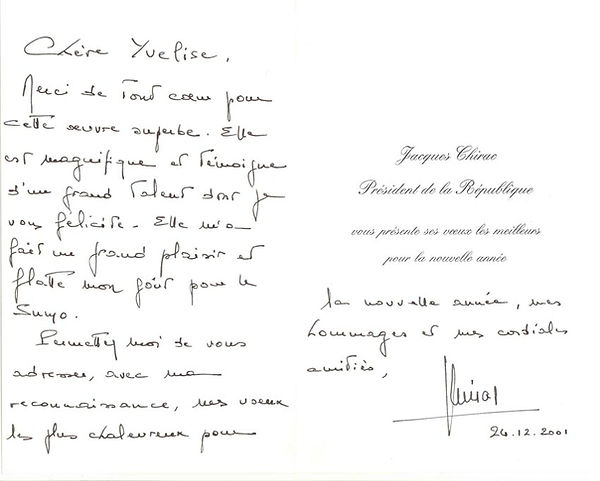 Chère Yvelise,
Merci de tout cœur pour
cette œuvre superbe. Elle
est magnifique et témoigne
d'un grand talent dont je
vous félicite. Elle m'a
fait un grand plaisir et
flatte mon goût pour le
Sumo.
Permettez moi de vous
adresser, avec ma
reconnaissance, mes vœux
les plus chaleureux pour
Jacques Chirac
Président de la République
vous présente ses vœux les meilleurs
pour la nouvelle année
la nouvelle année, mes
hommages et mes cordiales
amitiés,
JChirac
24.12.2001